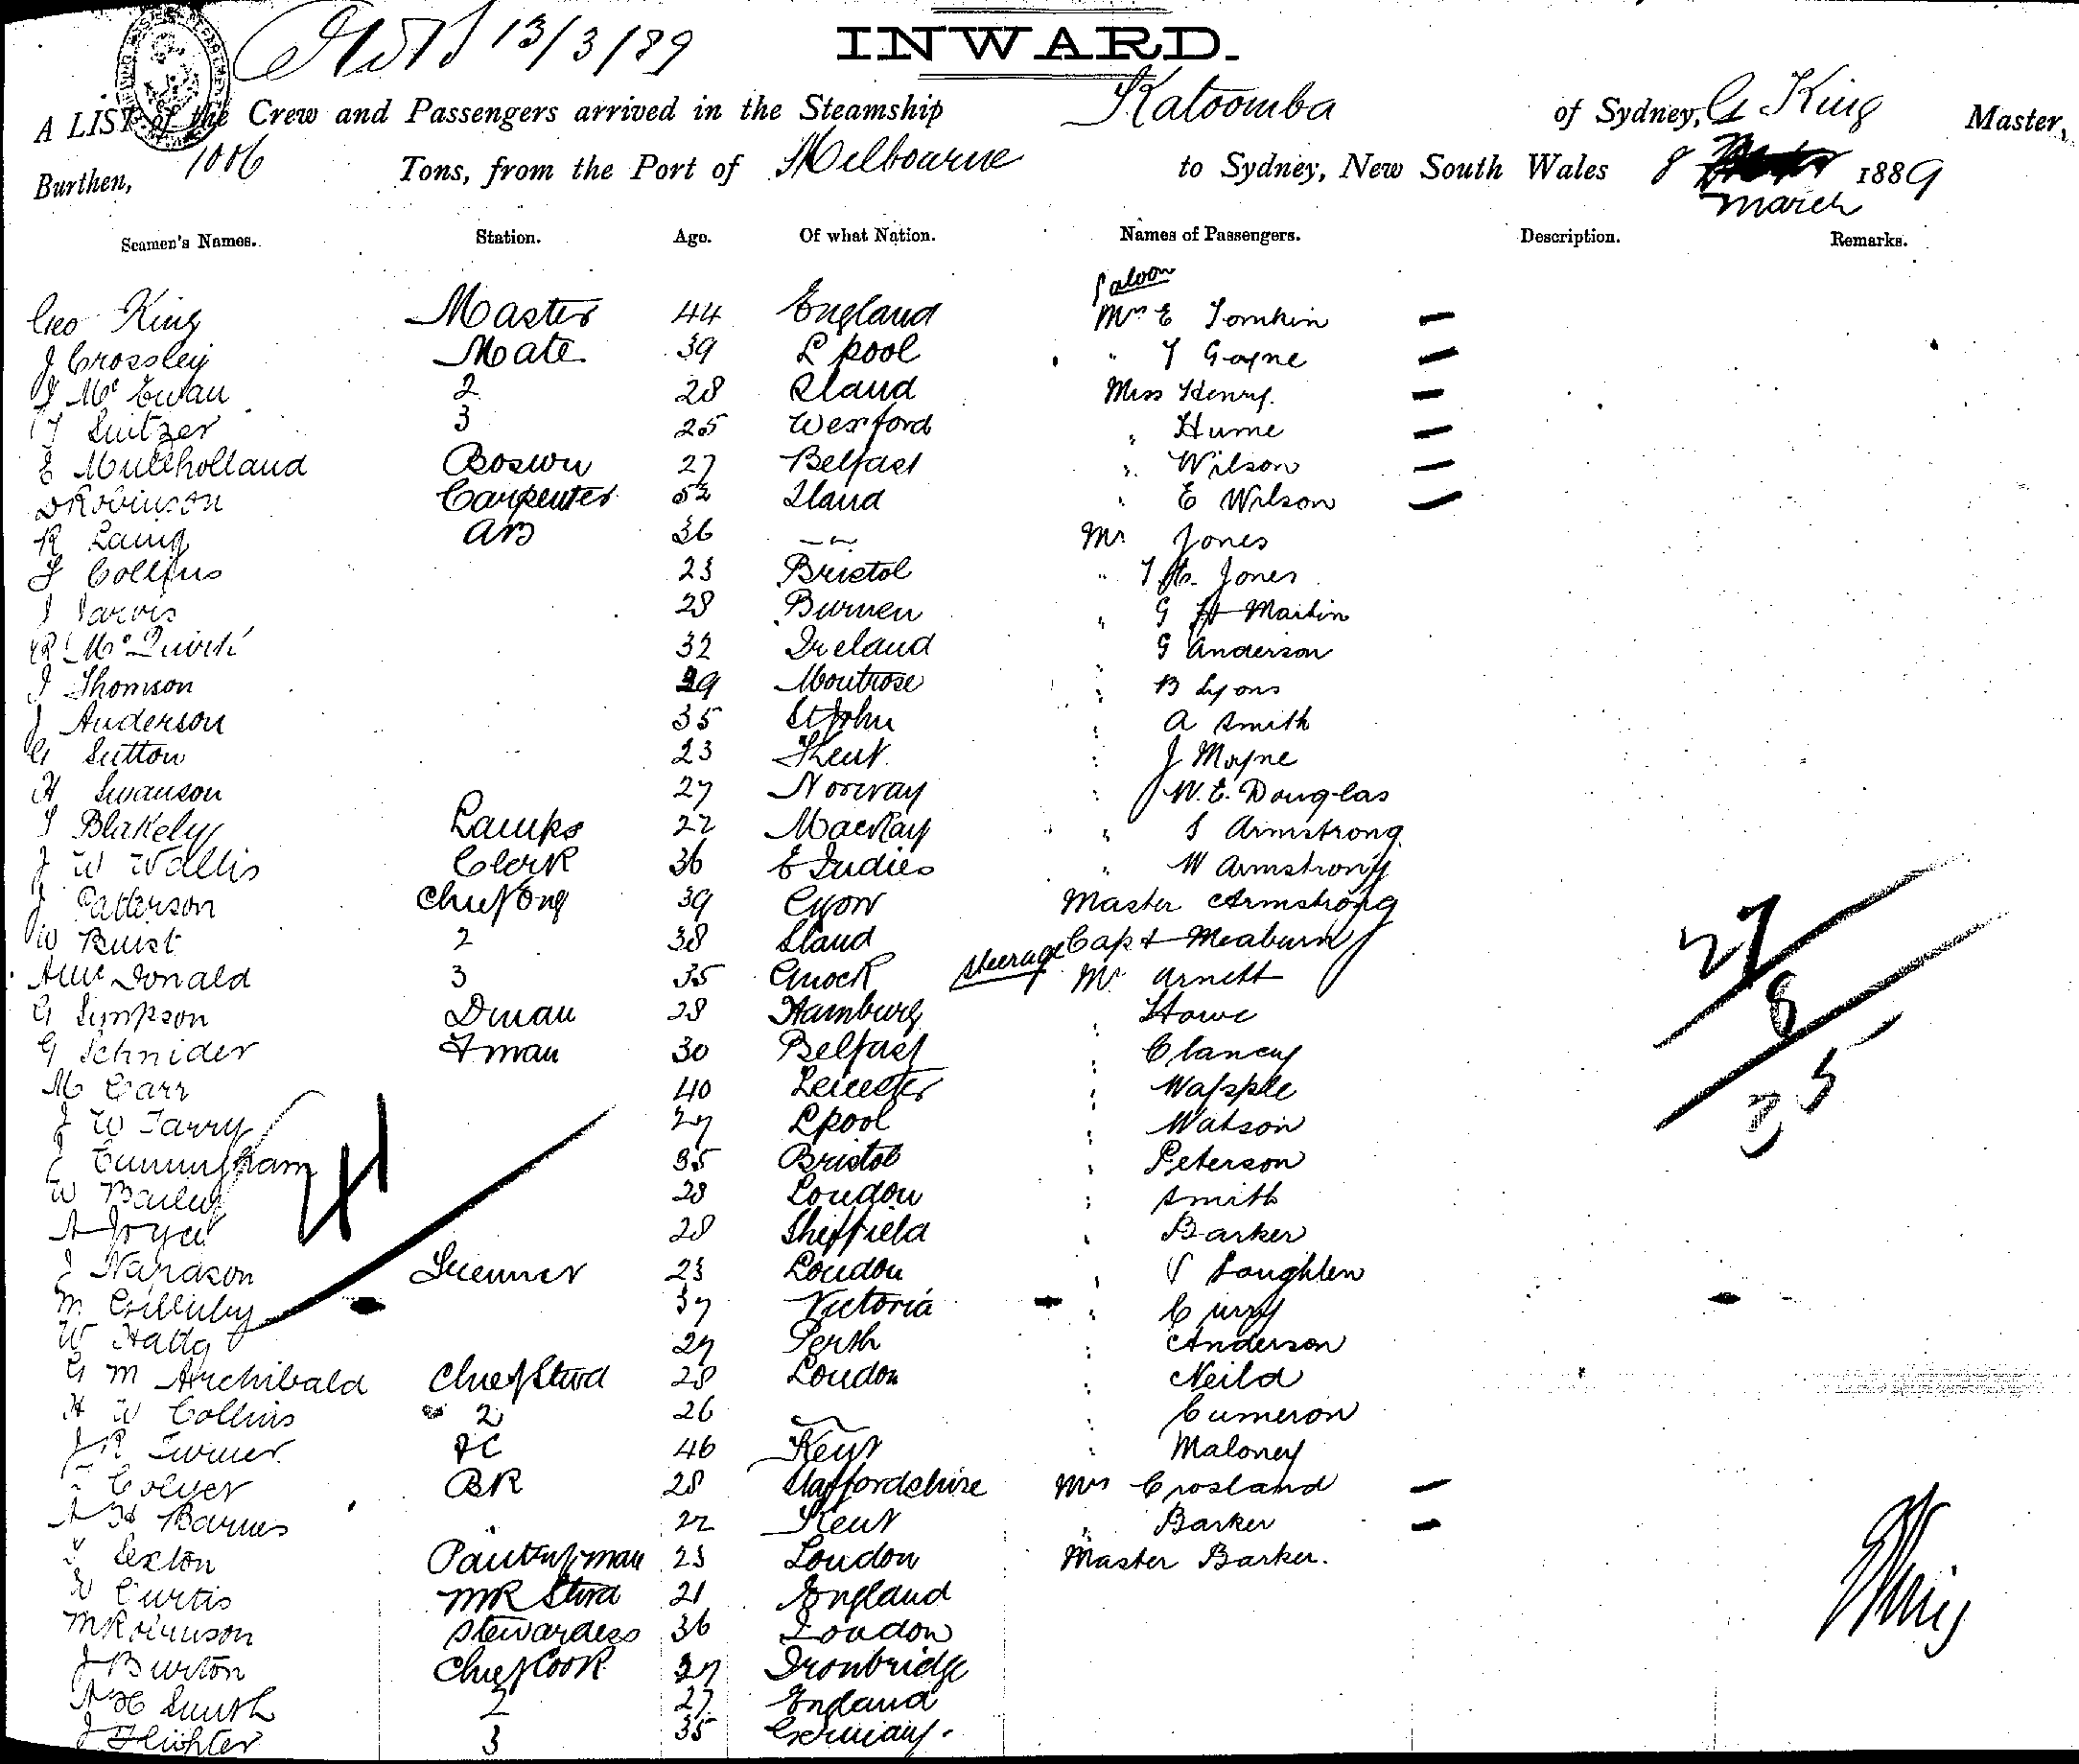 13/3/89
INWARD.
A LIST of the Crew and Passengers arrived in the Steamship Katoomba of Sydney, G King Master,
Burthen, 1006 Tons, from the Port of Melbourne to Sydney, New South Wales 8 March 1889
Seamen's Names. Station. Age. Of what Nation. Names of Passengers. Description. Remarks.
Saloon
Geo King Master 44 England Mrs E Tomkin —
J Crossley Mate 39 L pool " T Gayne —
J Mc Ewan 2 28 Sland Miss Henry. —
T Suitzer 3 25 Wexford " Hume —
E Mullholland Boswn 27 Belfast " Wilson —
D Robinson Carpenter 52 Sland " E Wilson —
R Laing AB 36 Mr Jones
Collins 23 Bristol " Jones
J Jarvis 28 " G H Martin
Mc Quirk 32 Ireland G Anderson
J Thomson 29 Montrose " B Lyons
J Anderson 35 St John " A Smith
G Sutton 23 Kent " J Mayne
H Swanson 27 Norway " W. E. Douglas
T Blakely Lamps 22 MacKay " S Armstrong
J W Wallis Clerk 36 E Indies " W Armstrong
J Patterson Chief Eng 39 Master Armstrong
W Buist 2 38 Sland Capt Meaburn
A McDonald 3 35 Steerage Mr Arnett
G Simpson Dman 28 Hamburg " Howe
G Schnider Fman 30 Belfast " Clancy
M Carr 40 Leicester " Wapple
J W Tarry 27 Lpool " Watson
J Cunningham 35 Bristol " Peterson
W Bailey 28 London " Smith
A Joyce 28 Sheffield " Barker
J Trenner 23 London " Loughlen
M 37 Victoria " Curry
W 27 Perth " Anderson
G M Archibald Chief Stwd 28 London " Neild
H W Collins " 2 26 " Cumeron
J R Turner PC 46 Kent " Maloney
Colyer BK 28 Staffordshire Mrs Crosland —
A H Barnes 22 Kent " Barker —
Sexton Pantryman 23 London Master Barker.
W Curtis MR Stwd 21 England
M Robinson Stewardess 36 London
J Burton Chief Cook 27 Ironbridge
A H Smith 2 27 England
J 3 35 Germany.
41
27
8
35